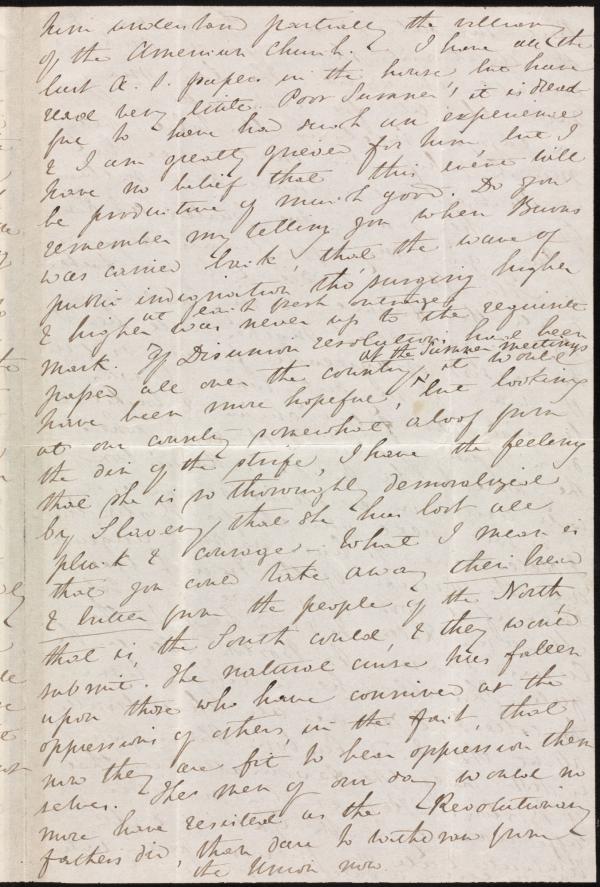 him understand partially the villainy
of the American Church. I have all the
last A. S. papers in the house but have
read very little. Poor Sumner! it is dread
ful to have had such an experience
& I am greatly grieved for him, but I
have no belief that this event will
be productive of much good. Do you
remember my telling you when Burns
was carried back, that the wave of
public indignation tho' surging higher
& higher at each fresh outrage
was never up to the requisite
mark. If Disunion resolutions had been
passed all over the country at the Sumner meetings, it would
have been more hopeful, but looking
at our country somewhat aloof from
the din of the strife, I have the feeling
that she is so thoroughly demoralized
by Slavery, that she has lost all
pluck & courage – What I mean is
that you could take away their bread
& butter from the people of the North
that is, the South could, & they would
submit. The natural curse has fallen
upon those who have connived at the
oppressions of others, in the fact, that
now they are fit to bear oppression them
selves. The men of our day would no
more have resisted as the Revolutionary
fathers did, than dare to withdraw from
the Union now.